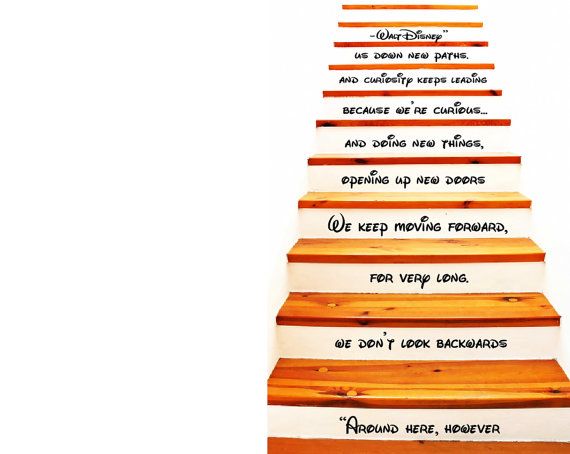 “Around here, however
we don't look backwards
for very long.
We keep moving forward,
opening up new doors
and doing new things,
because we're curious...
and curiosity keeps leading
us down new paths.
-Walt Disney”